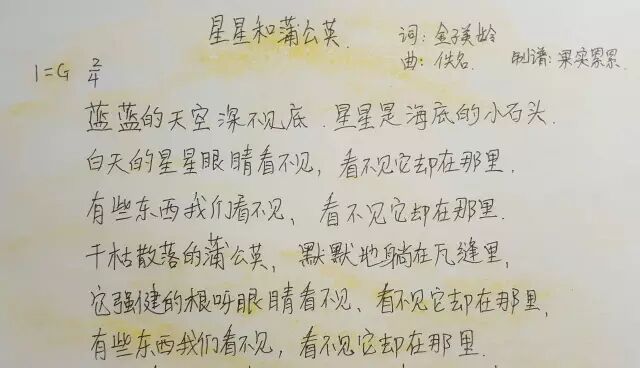 星星和蒲公英
词:金子美玲
曲:佚名. 制谱:果实累累.
1=G 2/4
蓝蓝的天空深不见底.星星是海底的小石头.
白天的星星眼睛看不见,看不见它却在那里.
有些东西我们看不见、看不见它却在那里.
干枯散落的蒲公英,默默地躺在瓦缝里,
它强健的根呀眼睛看不见、看不见它却在那里,
有些东西我们看不见,看不见它却在那里.